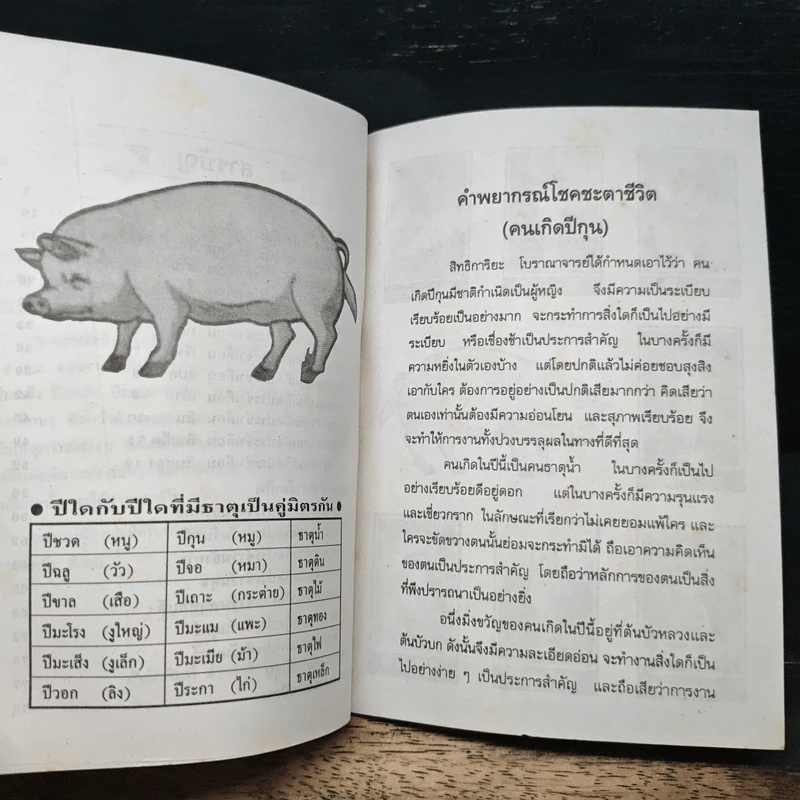 ● ปีใดกับปีใดที่มีธาตุเป็นคู่มิตรกัน ●
ปีชวด (หนู) ปีกุน (หมู) ธาตุน้ำ
ปีฉลู (วัว) ปีจอ (หมา) ธาตุดิน
ปีขาล (เสือ) ปีเถาะ (กระต่าย) ธาตุไม้
ปีมะโรง (งูใหญ่) ปีมะแม (แพะ) ธาตุทอง
ปีมะเส็ง (งูเล็ก) ปีมะเมีย (ม้า) ธาตุไฟ
ปีวอก (ลิง) ปีระกา (ไก่) ธาตุเหล็ก
คำพยากรณ์โชคชะตาชีวิต
(คนเกิดปีกุน)
สิทธิการิยะ โบราณาจารย์ได้กำหนดเอาไว้ว่า คน
เกิดปีกุนมีชาติกำเนิดเป็นผู้หญิง จึงมีความเป็นระเบียบ
เรียบร้อยเป็นอย่างมาก จะกระทำการสิ่งใดก็เป็นไปอย่างมี
ระเบียบ หรือเชื่องช้าเป็นประการสำคัญ ในบางครั้งก็มี
ความหยิ่งในตัวเองบ้าง แต่โดยปกติแล้วไม่ค่อยชอบสุงสิง
เอากับใคร ต้องการอยู่อย่างเป็นปกติเสียมากกว่า คิดเสียว่า
ตนเองเท่านั้นต้องมีความอ่อนโยน และสุภาพเรียบร้อย จึง
จะทำให้การงานทั้งปวงบรรลุผลในทางที่ดีที่สุด
คนเกิดในปีนี้เป็นคนธาตุน้ำ ในบางครั้งก็เป็นไป
อย่างเรียบร้อยดีอยู่ดอก แต่ในบางครั้งก็มีความรุนแรง
และเชี่ยวกราก ในลักษณะที่เรียกว่าไม่เคยยอมแพ้ใคร และ
ใครจะขัดขวางตนนั้นย่อมจะกระทำมิได้ ถือเอาความคิดเห็น
ของตนเป็นประการสำคัญ โดยถือว่าหลักการของตนเป็นสิ่ง
ที่พึงปรารถนาเป็นอย่างยิ่ง
อนึ่งมิ่งขวัญของคนเกิดในปีนี้อยู่ที่ต้นบัวหลวงและ
ต้นบัวบก ดังนั้นจึงมีความละเอียดอ่อน จะทำงานสิ่งใดก็เป็น
ไปอย่างง่าย ๆ เป็นประการสำคัญ และถือเสียว่าการงาน